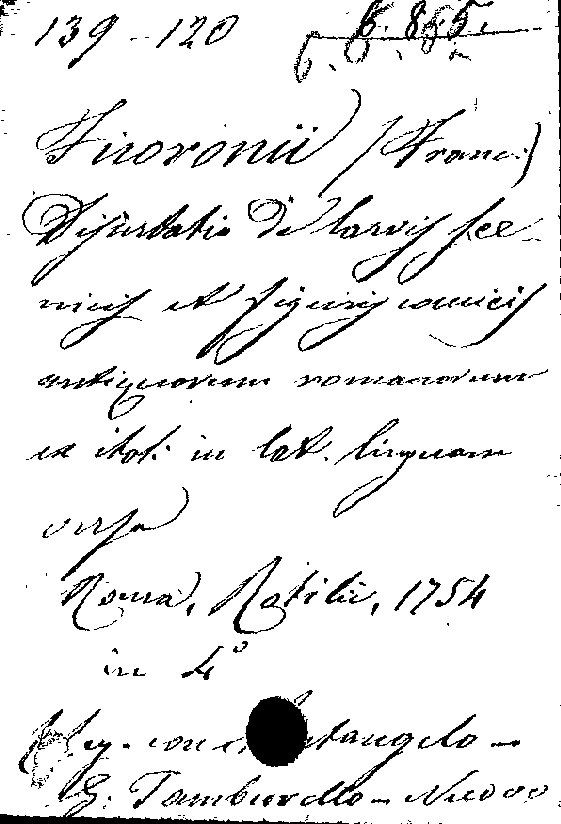 139-120 6.865.
Ficoronii (Franc:)
Dissertatio De larvis sce-
nicis et figuris comicis
antiquorum romanorum
ex itali: in lat. linguam
versa
Roma, Rotilii, 1754
in 4°
Leg. con
G. Tamburello - Nuovo